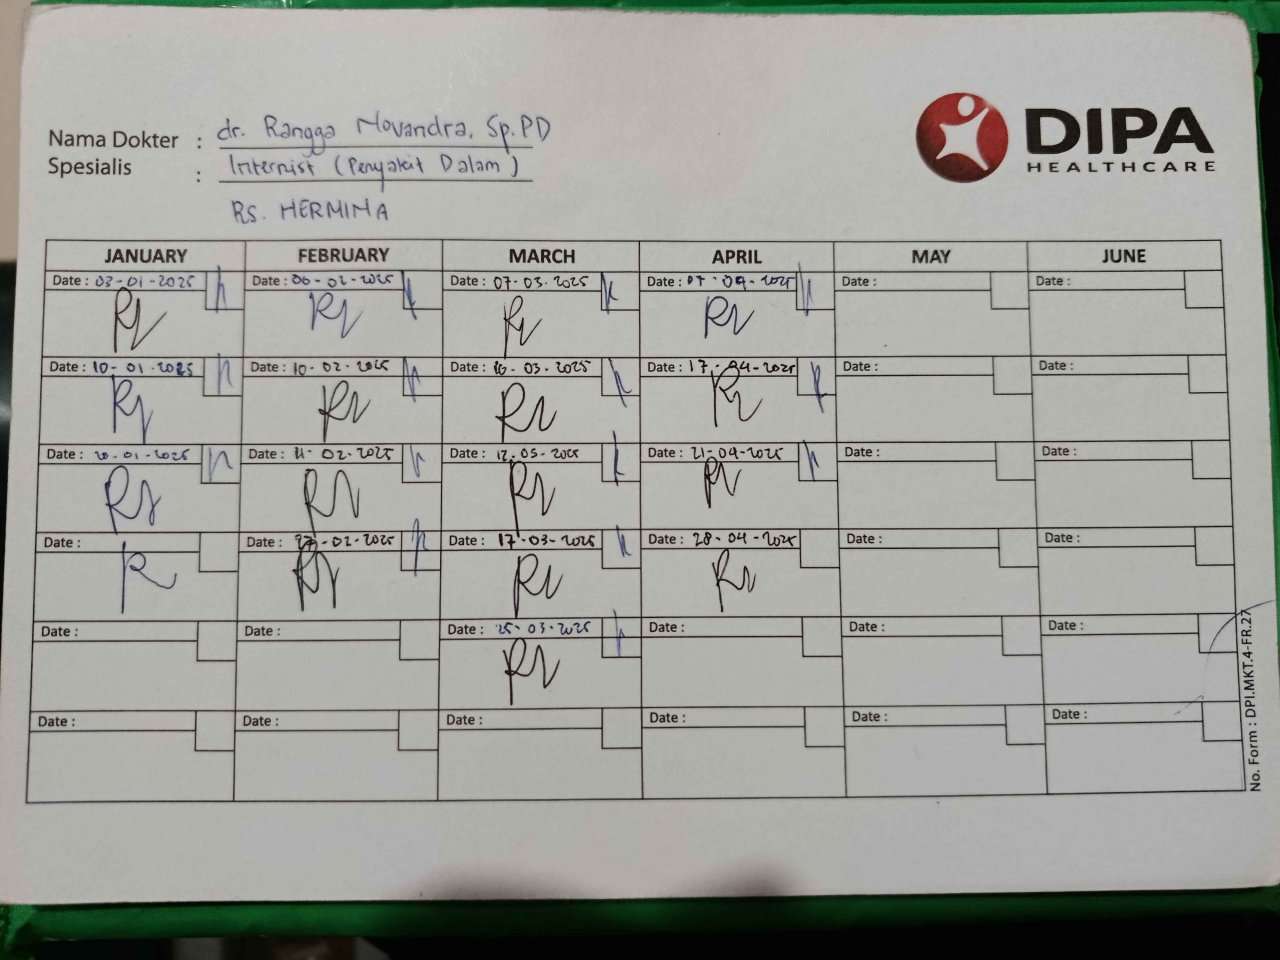 DIPA
HEALTHCARE
Nama Dokter : dr. Rangga Novandra, Sp.PD
Spesialis : Internist (Penyakit Dalam)
RS. HERMINA
JANUARY FEBRUARY MARCH APRIL MAY JUNE
Date : 03-01-2025 Date : 06-02-2025 Date : 07-03-2025 Date : 07-04-2025 Date : Date :
Date : 10-01-2025 Date : 10-02-2025 Date : 10-03-2025 Date : 17-04-2025 Date : Date :
Date : 20-01-2025 Date : 11-02-2025 Date : 12-03-2025 Date : 21-04-2025 Date : Date :
Date : Date : 27-02-2025 Date : 17-03-2025 Date : 28-04-2025 Date : Date :
Date : Date : Date : 25-03-2025 Date : Date : Date :
Date : Date : Date : Date : Date : Date :
No. Form : DPI.MKT.4-FR.27